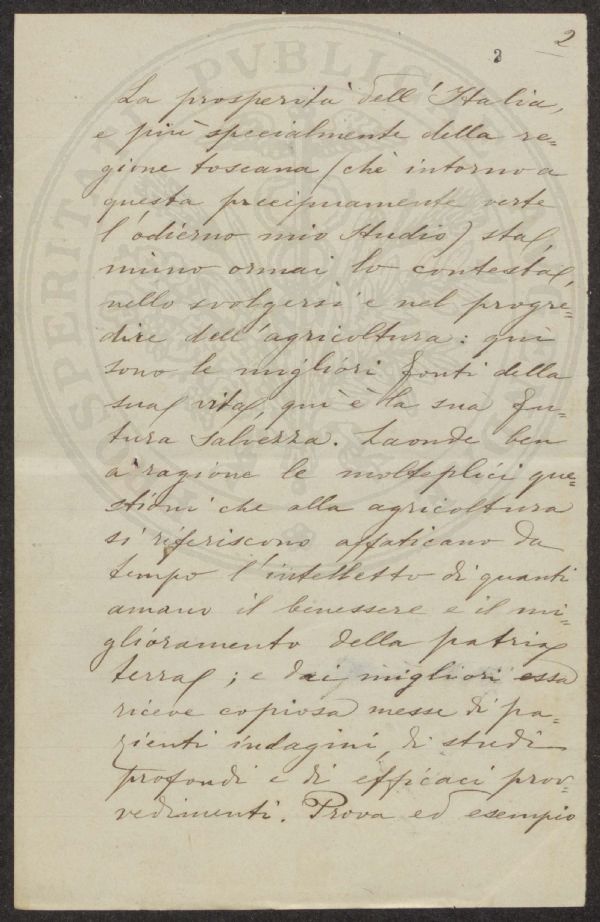 2
2
La prosperità dell'Italia,
e più specialmente della re=
gione toscana (chè intorno a
questa precipuamente verte
l'odierno mio studio) sta,
niuno ormai lo contesta,
nello svolgersi e nel progre=
dire dell'agricoltura: qui
sono le migliori fonti della
sua vita, qui è la sua fu=
tura salvezza. Laonde ben
a ragione le molteplici que=
stioni che alla agricoltura
si riferiscono affaticano da
tempo l'intelletto di quanti
amano il benessere e il mi=
glioramento della patria
terra; e dai migliori essa
riceve copiosa messe di pa=
zienti indagini, di studi
profondi e di efficaci prov=
vedimenti. Prova ed esempio